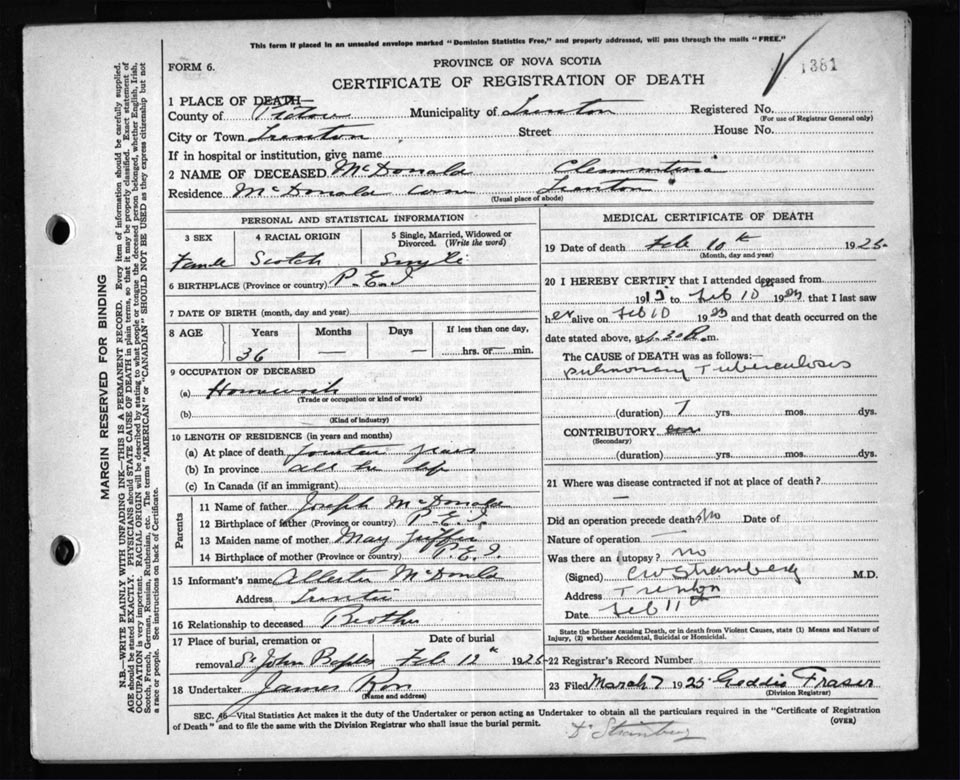 This form if placed in an unsealed envelope marked "Dominion Statistics Free," and property addressed, will pass through the mails "FREE."
PROVINCE OF NOVA SCOTIA
FORM 6.
CERTIFICATE OF REGISTRATION OF DEATH
1381
1 PLACE OF DEATH—
County of Pictou Municipality of Trenton Registered No.
(For use of Registrar General only)
City or Town Trenton Street House No.
If in hospital or institution, give name
2 NAME OF DECEASED McDonald Clementina
Residence McDonald Trenton
(Usual place of abode)
PERSONAL AND STATISTICAL INFORMATION
3 SEX 4 RACIAL ORIGIN 5 Single, Married, Widowed or Divorced. (Write the word)
Female Scotch Single
6 BIRTHPLACE (Province or country) P.E.I
7 DATE OF BIRTH (month, day and year)
8 AGE Years Months Days If less than one day,
36 — — hrs. or min.
9 OCCUPATION OF DECEASED
(a) Housework
(Trade or occupation or kind of work)
(b)
(Kind of industry)
10 LENGTH OF RESIDENCE (in years and months)
(a) At place of death fourteen years
(b) In province all her life
(c) In Canada (if an immigrant)
Parents
11 Name of father Joseph McDonald
12 Birthplace of father (Province or country) P.E.I.
13 Maiden name of mother May
14 Birthplace of mother (Province or country) P.E.I.
15 Informant's name McDonald
Address
16 Relationship to deceased Brother
17 Place of burial, cremation or Date of burial
removal St John Feb 12th 1925
18 Undertaker James Ross
(Name and address)
MEDICAL CERTIFICATE OF DEATH
19 Date of death Feb 10th 1925
(Month, day and year)
20 I HEREBY CERTIFY that I attended deceased from
19 to Feb 10 19 that I last saw
her alive on Feb 10 19 and that death occurred on
date stated above, at m.
The CAUSE of DEATH was as follows:—
Pulmonary Tuberculosis
(duration) 7 yrs. mos. dys.
CONTRIBUTORY
(Secondary)
(duration) yrs. mos. dys.
21 Where was disease contracted if not at place of death?
—
Did an operation precede death? No Date of
Nature of operation —
Was there an autopsy? no
(Signed) M.D.
Address Trenton
Date Feb 11th
State the Disease causing Death, or in death from Violent Causes, state (1) Means and Nature of Injury, (2) whether Accidental, Suicidal or Homicidal.
22 Registrar's Record Number
23 Filed March 7 1925 Geddie Fraser
(Division Registrar)
SEC. 46—Vital Statistics Act makes it the duty of the Undertaker or person acting as Undertaker to obtain all the particulars required in the "Certificate of Registration
of Death" and to file the same with the Division Registrar who shall issue the burial permit. (OVER)
MARGIN RESERVED FOR BINDING
N.B.—WRITE PLAINLY WITH UNFADING INK—THIS IS A PERMANENT RECORD. Every item of information should be carefully supplied.
AGE should be stated EXACTLY. PHYSICIANS should STATE CAUSE OF DEATH in plain terms, so that it may be properly classified. Exact statement of
OCCUPATION is very important. RACIAL ORIGIN will be described by stating to what people or tongue the deceased person belonged, whether English, Irish,
Scotch, French, German, Russian, Ruthenian, etc. The terms "AMERICAN" or "CANADIAN" SHOULD NOT BE USED as they express citizenship but not
a race or people. See instructions on back of Certificate.